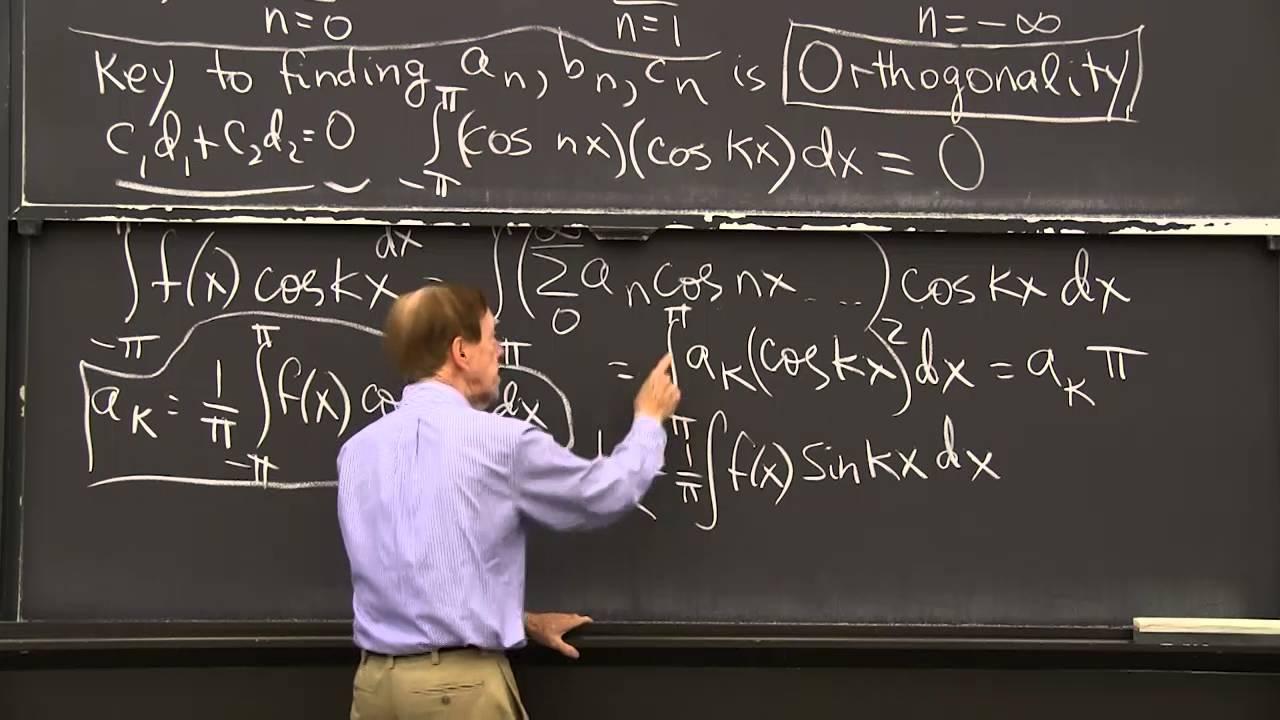 n=0 n=1 n=-∞
Key to finding aₙ, bₙ, cₙ is Orthogonality
c₁d₁+c₂d₂=0 ∫_{-π}^{π} (cos nx)(cos kx) dx = 0
∫_{-π} f(x) cos kx dx = ∫ (∑_{0}^{∞} aₙ cos nx ... ) cos kx dx
= ∫^{π} a_K (cos kx)² dx = a_K π
a_K = 1/π ∫_{-π}^{π} f(x) dx
1/π ∫^{π} f(x) sin kx dx